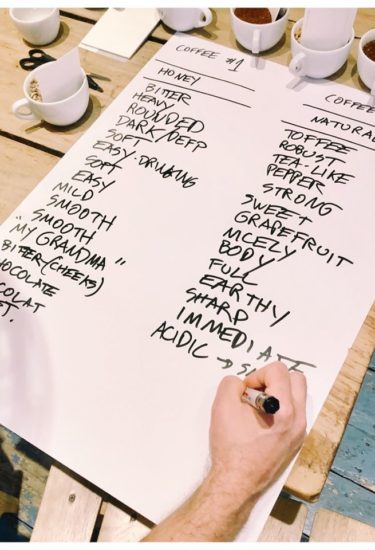 COFFEE #1
HONEY
BITTER
HEAVY
ROUNDED
DARK/DEEP
SOFT
EASY-DRINKING
SOFT
EASY
MILD
SMOOTH
SMOOTH
"MY GRANDMA"
BITTER (CHEEKS)
HOCOLATE
COLAT
ST.
COFFE
NATURAL
TOFFEE
ROBUST
TEA-LIKE
PEPPER
STRONG
SWEET
GRAPEFRUIT
NICELY
BODY
FULL
EARTHY
SHARP
IMMEDIATE
ACIDIC →